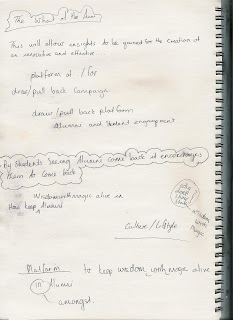 The What of the
This will allow insights to be gained for the creation of
an innovative and effective...
platform of / for
draw/pull back campaign.
draw/pull back platform
Alumni and student engagement
By Students Seeing Alumni come back it encourages
them to come back
Wisdom with magic alive in
How keep Alumni
Culture/Lifestyle
Platform to keep wisdom with magic alive
in Alumni
amongst.